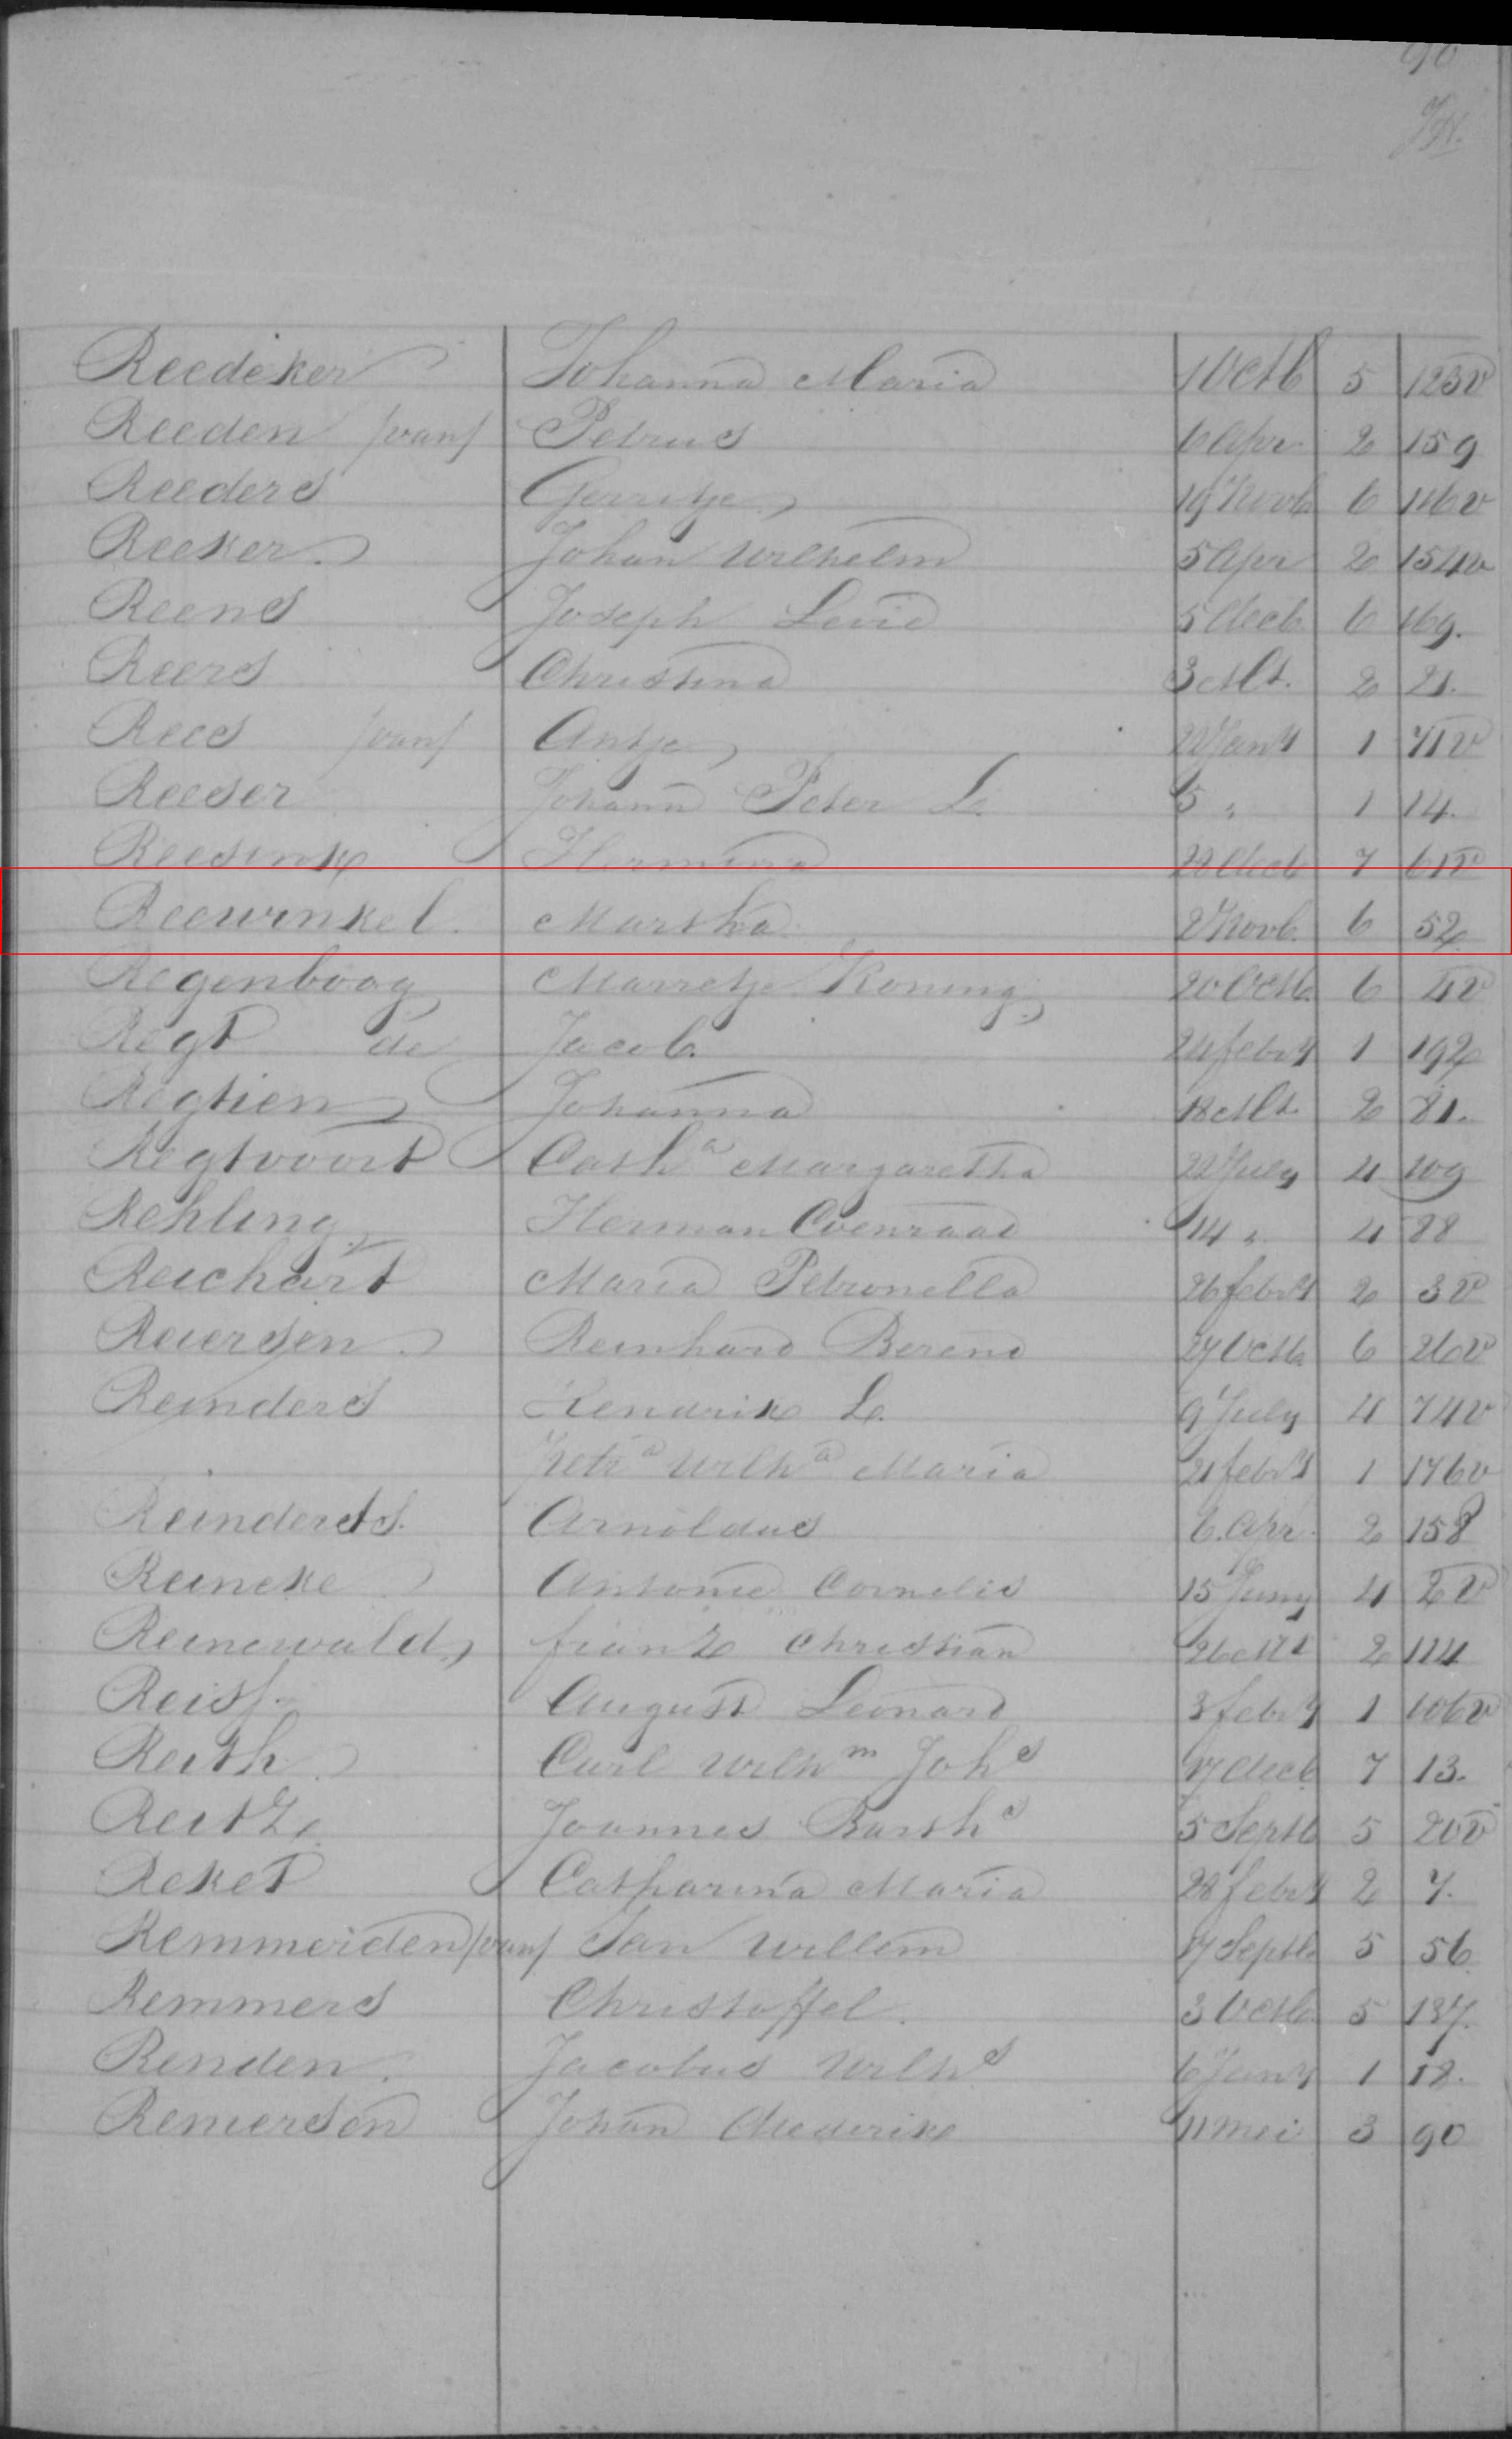 Reedeker Johanna Maria 1 Octb 5 123v
Reeden /van/ Petrus 6 Apr. 2 159
Reeders Gerritje 19 Novb 6 116v
Reeker Johan Wilhelm 5 Apr 2 154v
Reens Joseph Levie 5 Decb 6 169.
Reers Christina 3 Mt. 2 21.
Rees /van/ Antje Jany 1 71v
Reeser Johann Peter L. 5 " 1 14.
Reesink Hermina Decb 7 61v
Reewinkel. Martha 2 Novb. 6 52
Regenboog Marretje Koning 20 Octb. 6 4v
Regt de Jacob. 24 febry 1 192
Regtien Johanna 18 Mt. 2 81.
Regtvoort Catha Margaretha 22 July 4 109
Rehling Herman Coenraad 14 " 4 88
Reichart Maria Petronella 26 febry 2 3v
Reiersen Reinhard Berend 27 Octb 6 26v
Reinders Hendrik L. 9 July 4 74v
Petra Wilha Maria 21 febry 1 176v
Reinderts. Arnoldus 6. Apr. 2 158
Reineke Antonie Cornelis 15 Juny 4 2v
Reinewald frantz Christian 26 Mt 2 114
Reiss. August Leonard 3 febry 1 106v
Reith Carl Wilhm Johs 17 Decb 7 13.
Reitz Joannes Barths 5 Septb 5 20v
Reket Catharina Maria 28 febry 2 7.
Remmerden /van/ Jan Willem 17 Septb 5 56
Remmers Christoffel. 3 Octb. 5 137.
Renden. Jacobus Wilhs 6 Jany 1 18.
Renierson Johan Diederik 11 mei 3 90